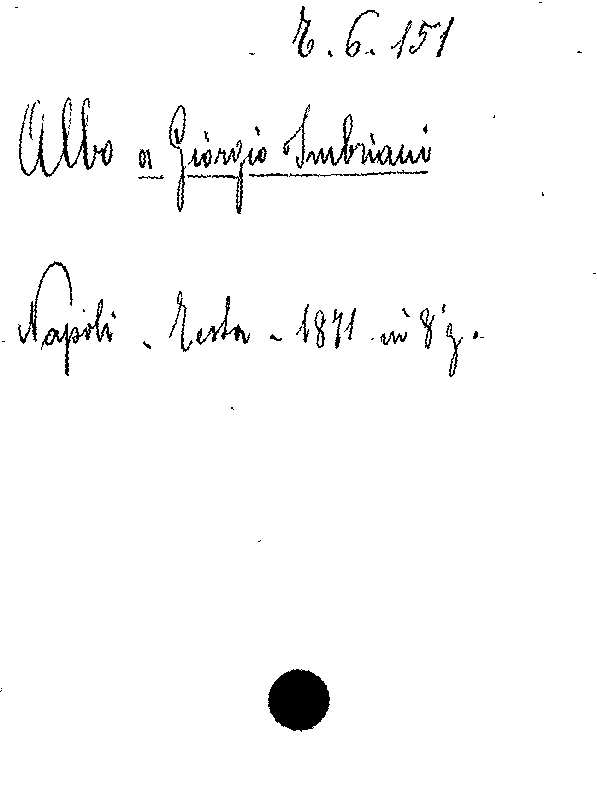 E. 6. 151
Albo a Giorgio Imbriani
Napoli - Testa - 1871 in 8° g.